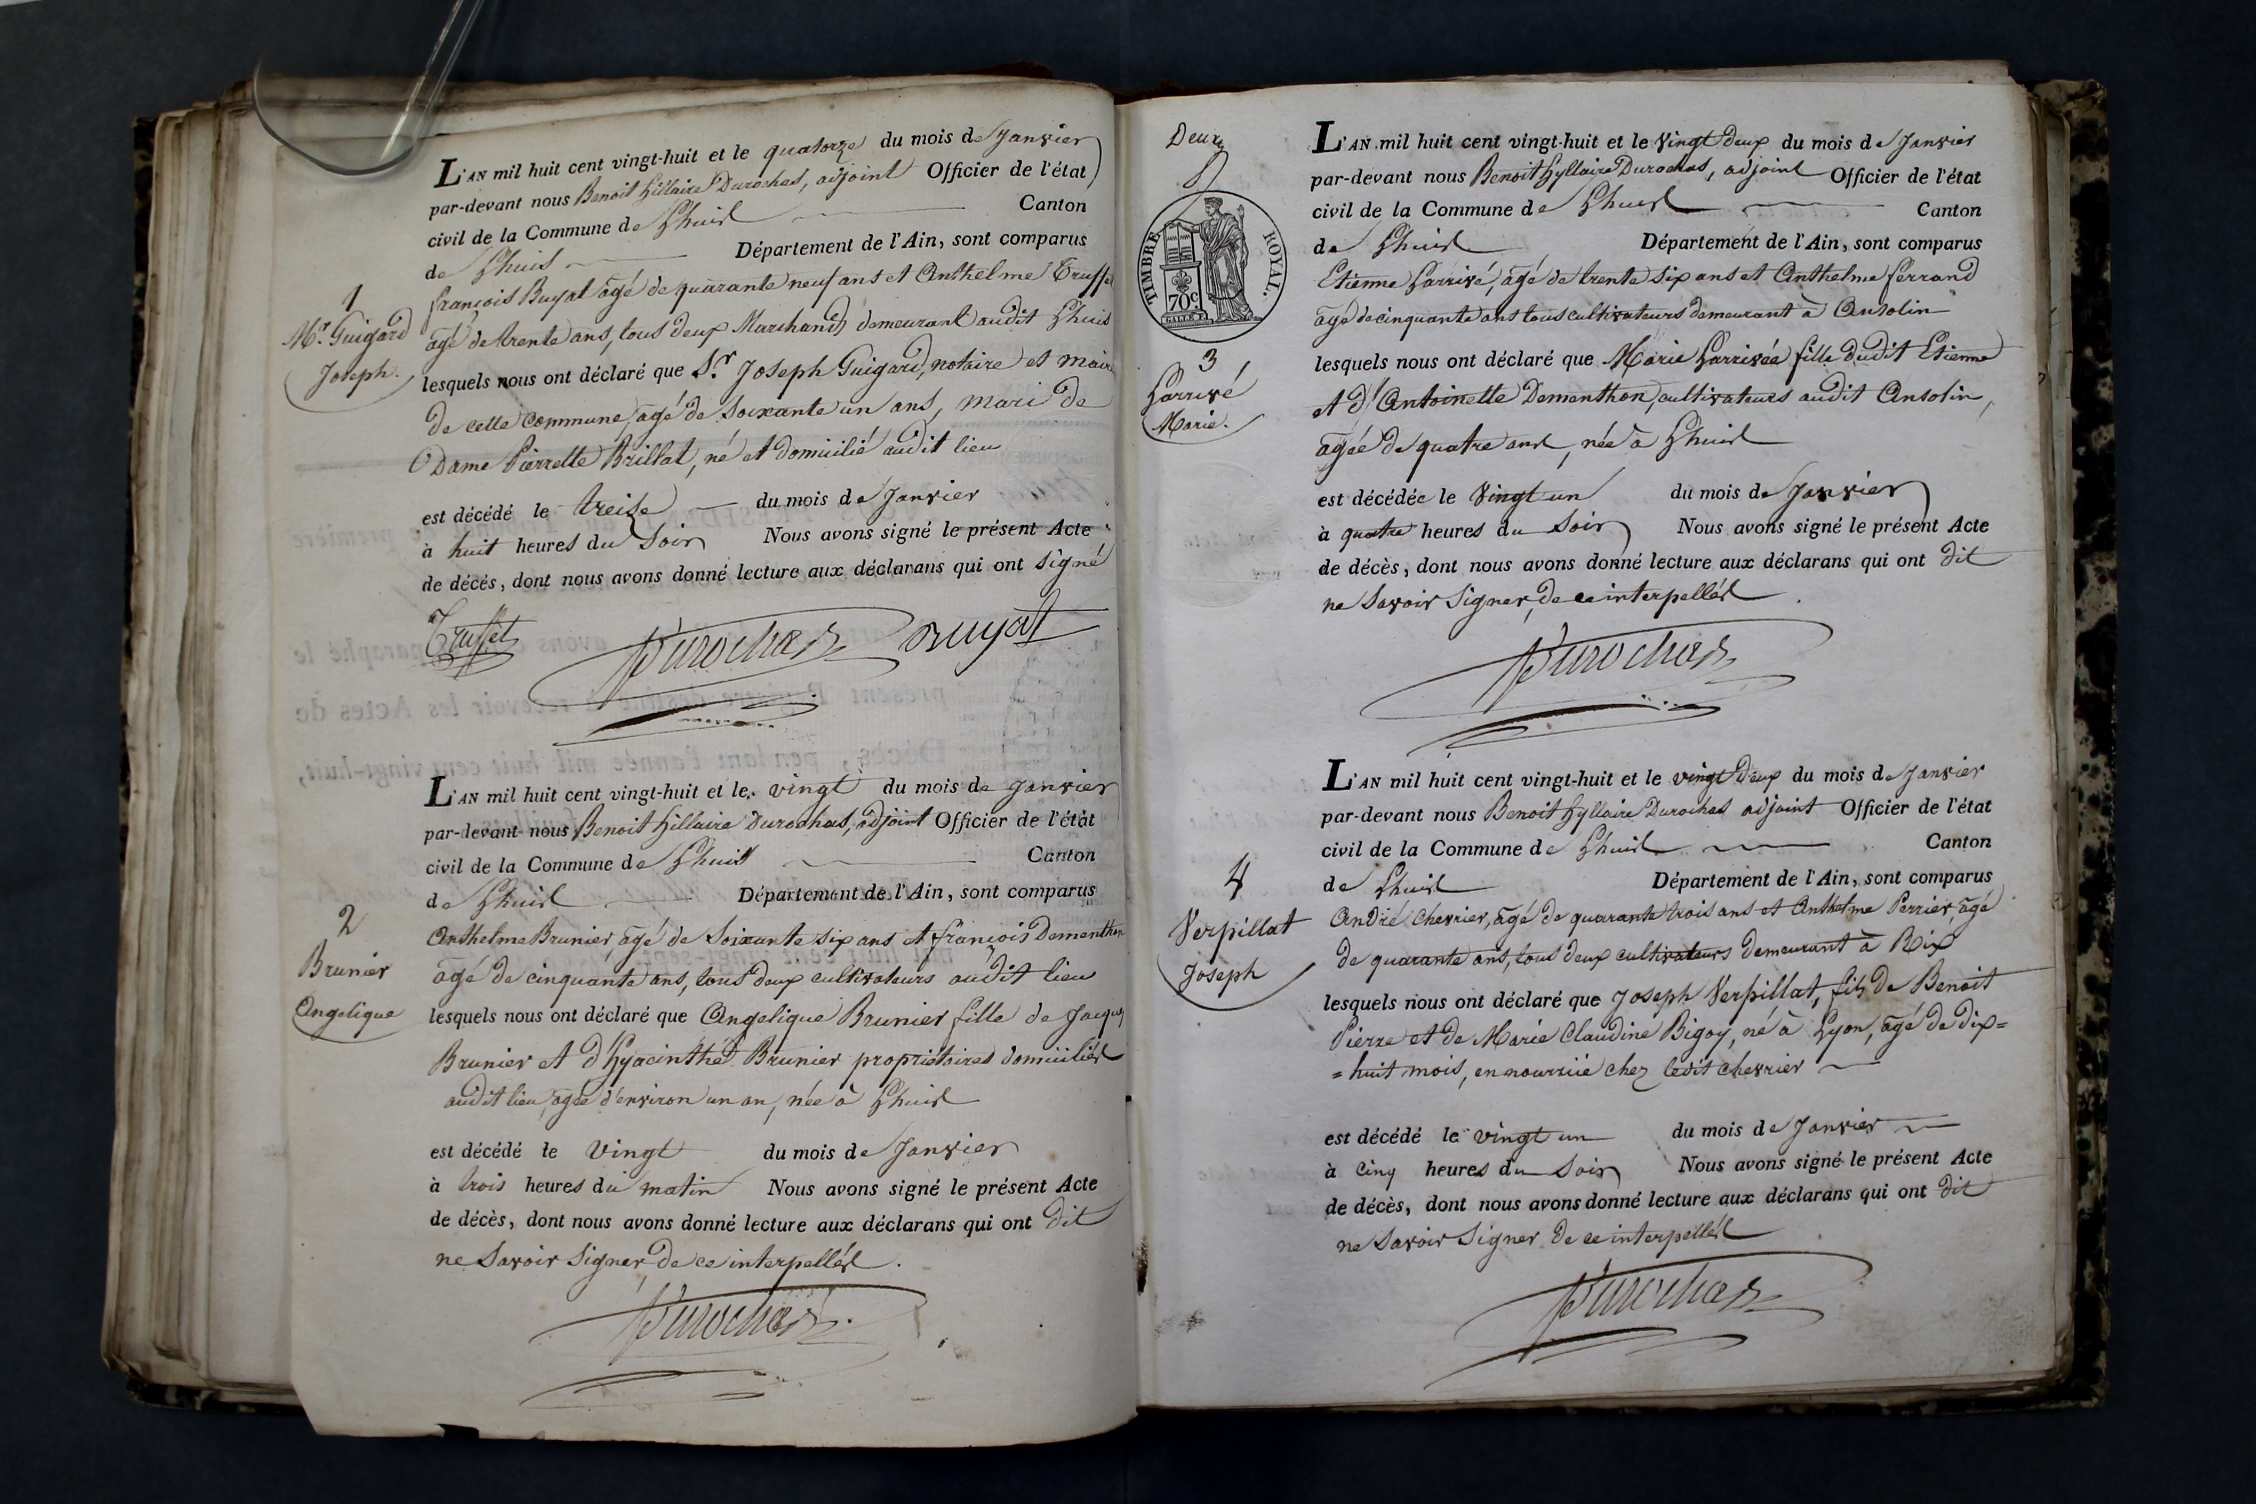 1
Mr. Guigard
Joseph.
L'AN mil huit cent vingt-huit et le quatorze du mois de Janvier
par-devant nous Benoit hillaire Durochas, adjoint Officier de l'état
civil de la Commune de Lhuis Canton
de Lhuis Département de l'Ain, sont comparus
françois Buyat âgé de quarante neuf ans et Anthelme Truffet
âgé de trente ans, tous deux Marchands demeurant audit Lhuis
lesquels nous ont déclaré que Sr. Joseph Guigard, notaire et maire
de cette commune, agé de soixante un ans, mari de
Dame Pierrette Brillat, né et domicilié audit lieu
est décédé le treise du mois de Janvier
à huit heures du Soir Nous avons signé le présent Acte
de décès, dont nous avons donné lecture aux déclarans qui ont signé
Truffet Durochas Buyat
2
Brunier
Angelique
L'AN mil huit cent vingt-huit et le vingt du mois de Janvier
par-devant nous Benoit hillaire Durochas, adjoint Officier de l'état
civil de la Commune de Lhuis Canton
de Lhuis Département de l'Ain, sont comparus
Anthelme Brunier, âgé de soixante six ans et françois Dementhon
âgé de cinquante ans, tous deux cultivateurs audit lieu
lesquels nous ont déclaré que Angelique Brunier fille de Jacques
Brunier et d'hyacinthe Brunier propriétaires domiciliés
audit lieu, agée d'environ un an, née à Lhuis
est décédé le Vingt du mois de Janvier
à trois heures du matin Nous avons signé le présent Acte
de décès, dont nous avons donné lecture aux déclarans qui ont dit
ne savoir signer, de ce interpellés.
Durochas
Deux
TIMBRE ROYAL.
70c.
3
Larrivé
Marie.
L'AN mil huit cent vingt-huit et le Vingt deux du mois de Janvier
par-devant nous Benoit hyllaire Durochas, adjoint Officier de l'état
civil de la Commune de Lhuis Canton
de Lhuis Département de l'Ain, sont comparus
Etienne Larrivé, âgé de trente six ans et Anthelme ferrand
âgé de cinquante ans tous cultivateurs demeurant à Ansolin
lesquels nous ont déclaré que Marie Larrivée fille dudit Etienne
et d'Antoinette Dementhon, cultivateurs audit Ansolin,
âgée de quatre ans, née à Lhuis
est décédée le Vingt un du mois de Janvier
à quatre heures du Soir Nous avons signé le présent Acte
de décès, dont nous avons donné lecture aux déclarans qui ont dit
ne savoir signer, de ce interpellés
Durochas
4
Verpillat
Joseph
L'AN mil huit cent vingt-huit et le vingt deux du mois de Janvier
par-devant nous Benoit hyllaire Durochas adjoint Officier de l'état
civil de la Commune de Lhuis Canton
de Lhuis Département de l'Ain, sont comparus
André Chevrier, âgé de quarante trois ans et Anthelme Perrier, agé
de quarante ans, tous deux cultivateurs demeurant à Rix
lesquels nous ont déclaré que Joseph Verpillat, fils de Benoit
Pierre et de Marie Claudine Bigoy, né à Lyon, agé de dix=
=huit mois, en nourrice chez ledit Chevrier
est décédé le vingt un du mois de Janvier
à cinq heures du Soir Nous avons signé le présent Acte
de décès, dont nous avons donné lecture aux déclarans qui ont dit
ne savoir signer de ce interpellés
Durochas